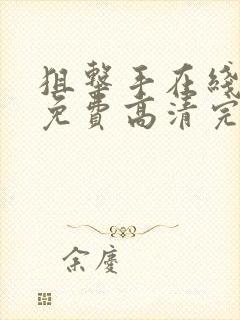 狙擊手在綫
免費高清完
余慶